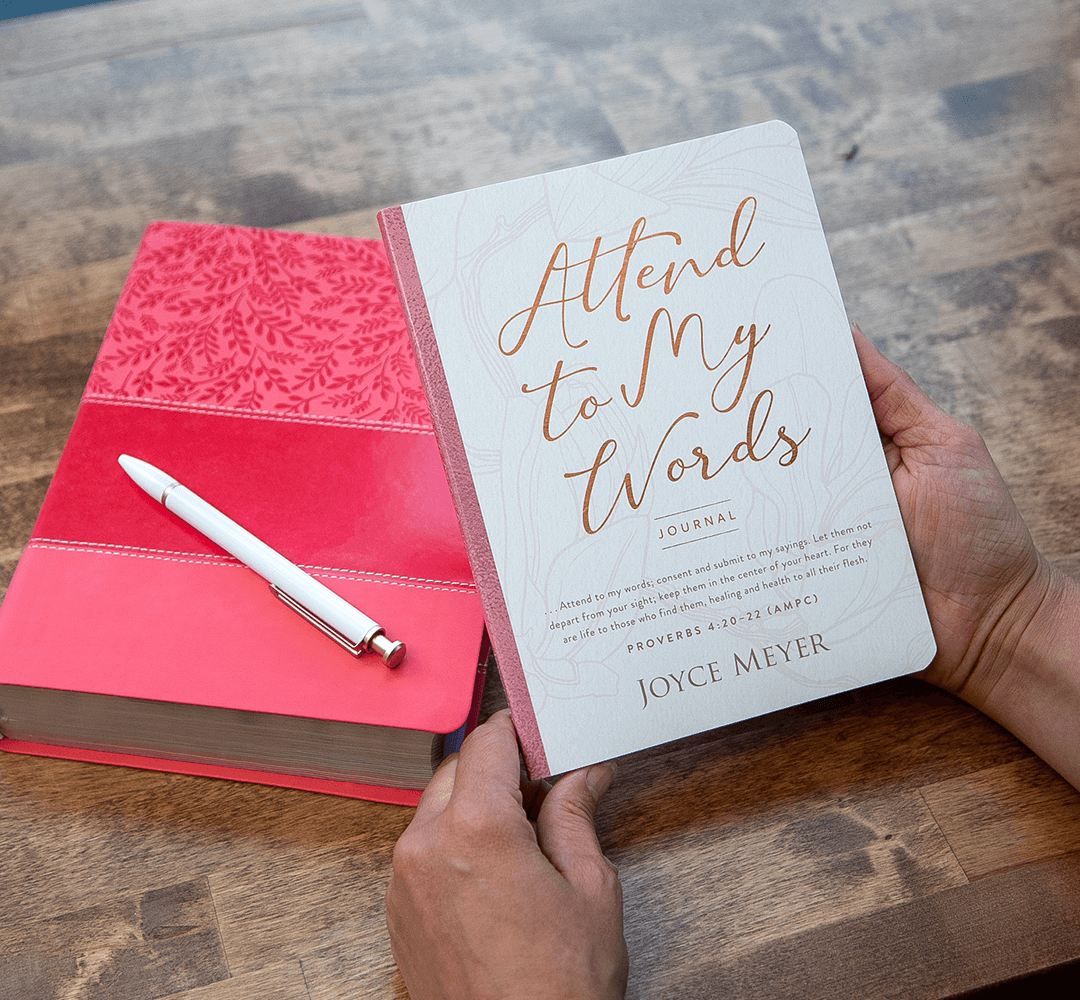 Attend
to My
Words
JOURNAL
...Attend to my words; consent and submit to my sayings. Let them not
depart from your sight; keep them in the center of your heart. For they
are life to those who find them, healing and health to all their flesh.
PROVERBS 4:20–22 (AMPC)
JOYCE MEYER